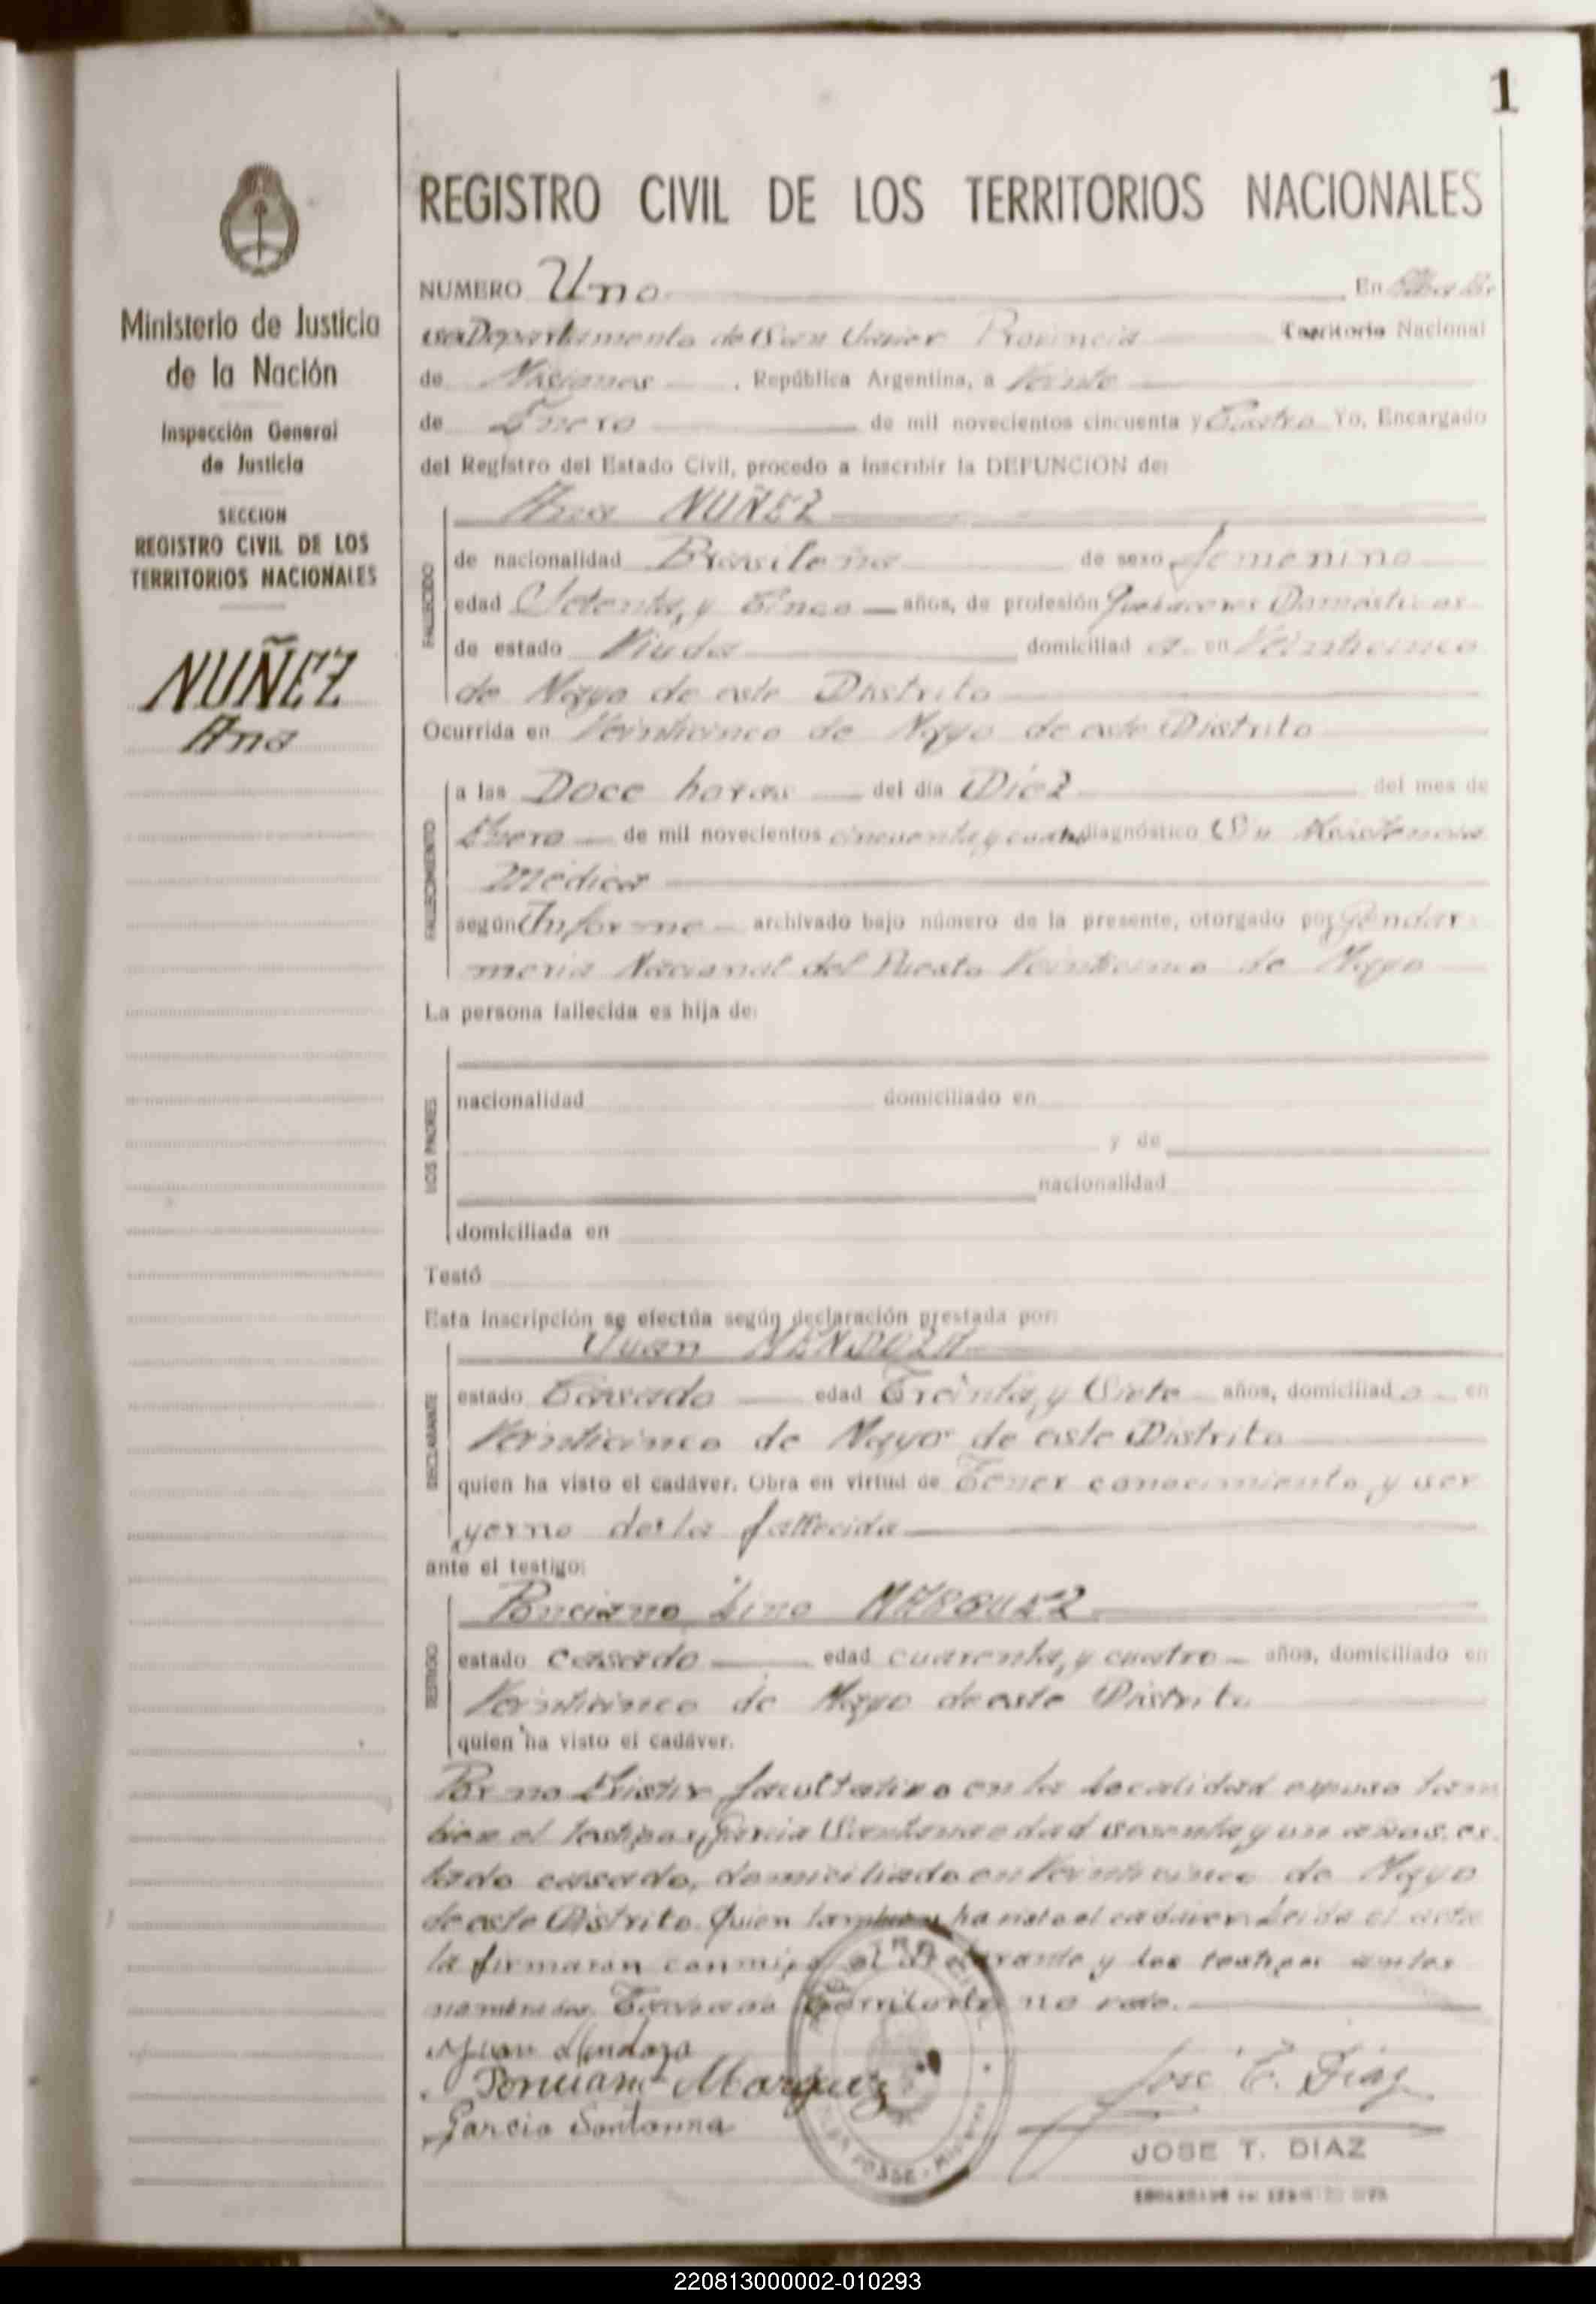 1
REGISTRO CIVIL DE LOS TERRITORIOS NACIONALES
Ministerio de Justicia
de la Nación
Inspección General
de Justicia
SECCION
REGISTRO CIVIL DE LOS
TERRITORIOS NACIONALES
NUÑEZ
Ana
NUMERO Uno En
Departamento de San Javier Provincia Territorio Nacional
de Misiones, República Argentina, a Veinte
de Enero de mil novecientos cincuenta y Cuatro Yo, Encargado
del Registro del Estado Civil, procedo a inscribir la DEFUNCION de:
FALLECIDO
Ana NUÑEZ
de nacionalidad Brasileña de sexo femenino
edad Setenta y Cinco años, de profesión Quehaceres Domésticos
de estado Viuda domiciliad a en Veinticinco
de Mayo de este Distrito
Ocurrida en Veinticinco de Mayo de este Distrito
FALLECIMIENTO
a las Doce horas del día Diez del mes de
Enero de mil novecientos cincuenta y cuatro diagnóstico Sin Asistencia
Médica
según Informe archivado bajo número de la presente, otorgado por Gendar
meria Nacional del Puesto Veinticinco de Mayo
La persona fallecida es hija de:
LOS PADRES
nacionalidad domiciliado en
y de
nacionalidad
domiciliada en
Testó
Esta inscripción se efectúa según declaración prestada por:
DECLARANTE
Juan MENDOZA
estado Casado edad Treinta y Siete años, domiciliad o en
Veinticinco de Mayo de este Distrito
quien ha visto el cadáver. Obra en virtud de Tener conocimiento y ser
yerno de la fallecida
ante el testigo:
TESTIGO
Ponciano Lino MARQUEZ
estado casado edad cuarenta y cuatro años, domiciliado en
Veinticinco de Mayo de este Distrito
quien ha visto el cadáver.
Por no Existir facultativo en la localidad expuso tam
bien el testigo Garcia Santana edad sesenta y un años, es
tado casado, domiciliado en Veinticinco de Mayo
de este Distrito. Quien tambien ha visto el cadáver. Leida el acta
la firmaron conmigo el Declarante y los testigos antes
nombrados. Territorio no vale.
Juan Mendoza
Ponciano Marquez
Garcia Santanna
POSSE - MISIONES
José T. Diaz
JOSE T. DIAZ
220813000002-010293